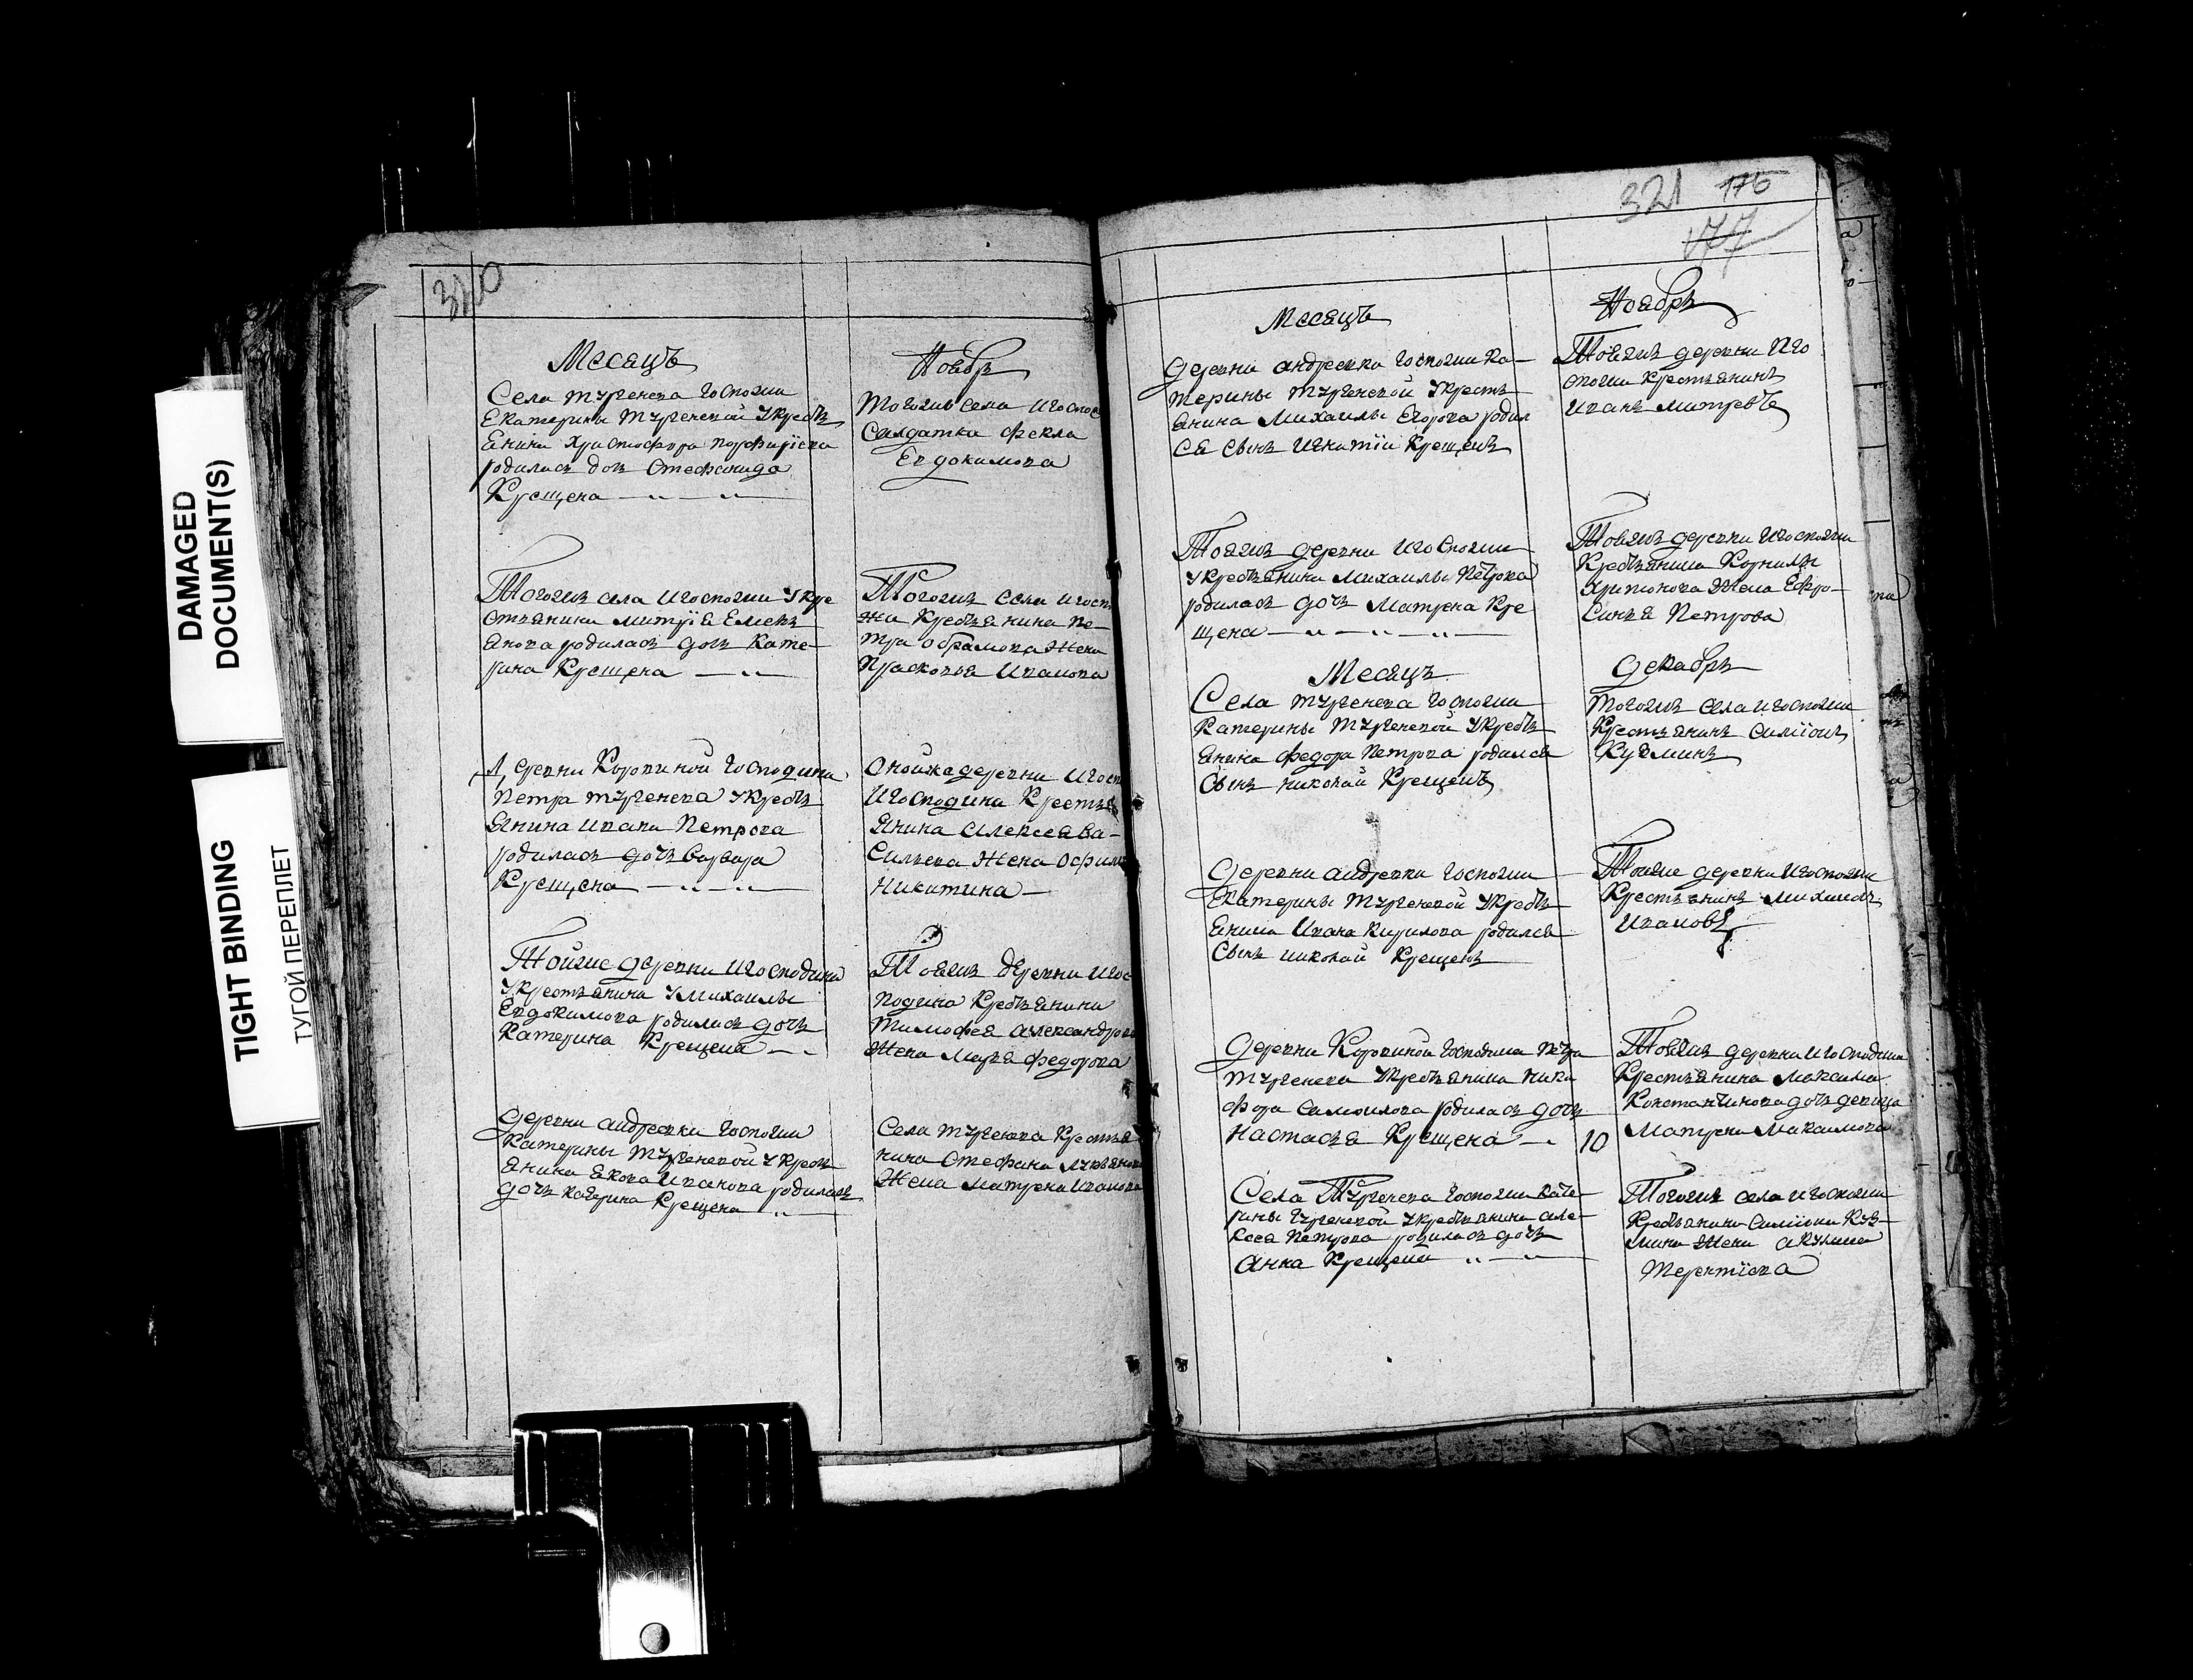 DAMAGED
DOCUMENT(S)
TIGHT BINDING
ТУГОЙ ПЕРЕПЛЕТ
320
Месяцъ
Села тургенева госпожи
Екатерины тургеневой у кресть
янина христофора порфирiева
родилась дочь стефанида
Крещена
Тогожъ села и госпожи у кре
стьянина митрiя емель
янова родилась дочь кате
рина Крещена
Деревни Коровиной господина
петра тургенева у кресть
янина ивана петрова
родилась дочь варвара
Крещена
Тойже деревни и господина
у крестьянина у михаилы
евдокимова родилась дочь
катерина Крещена
деревни андреевки госпожи
катерины тургеневой у кресть
янина якова иванова родилась
дочь катерина крещена
Ноябрь
тогожъ села и госпос
салдатка фекла
Евдокимова
Тогожъ села и госп
жи крестьянина пе
тра обрамова жена
Прасковья Иванова
оной же деревни и госп
и господина крестья
янина алексея ва
сильева жена
никитина
Тояжъ деревни и гос
подина крестьянина
тимофея александрова
жена марья федорова
села тургенева крестья
нина стефана лукьянова
жена матрена иванова
321 176
177
Месяцъ
деревни андреевки госпожи ка
терины тургеневой у кресть
янина михаилы егорова родил
ся сынъ игнатiй крещенъ
Тояжъ деревни и госпожи
у крестьянина михаилы петрова
родилась дочь матрена кре
щена
Месяцъ
Села тургенева госпожи
катерины тургеневой у кресть
янина федора петрова родился
сынъ николай крещенъ
деревни андреевки госпожи
екатерины тургеневой у кресть
янина ивана кирилова родился
сынъ николай крещенъ
деревни коровиной господина петра
тургенева у крестьянина ники
фора самоилова родилась дочь
настасья крещена
10
Села Тургенева госпожи кате
рины тургеневой у крестьянина але
ксея петрова родилась дочь
анна крещена
Ноябрь
Тояжъ деревни и го
спожи крестьянинъ
иванъ митревъ
Тояжъ деревни и госпожи
крестьянина корнилы
харитонова жена ефро
синья петрова
декабрь
тогожъ села и госпожи
крестьянинъ симiонъ
кузминъ
Тояже деревни и госпожи
крестьянинъ михаилъ
ивановъ
Тояжъ деревни и господина
крестьянина максима
константинова дочь девица
матрена максимова
Тогожъ села и госпожи
крестьянина симiона куз
мина жена акулина
терентiева